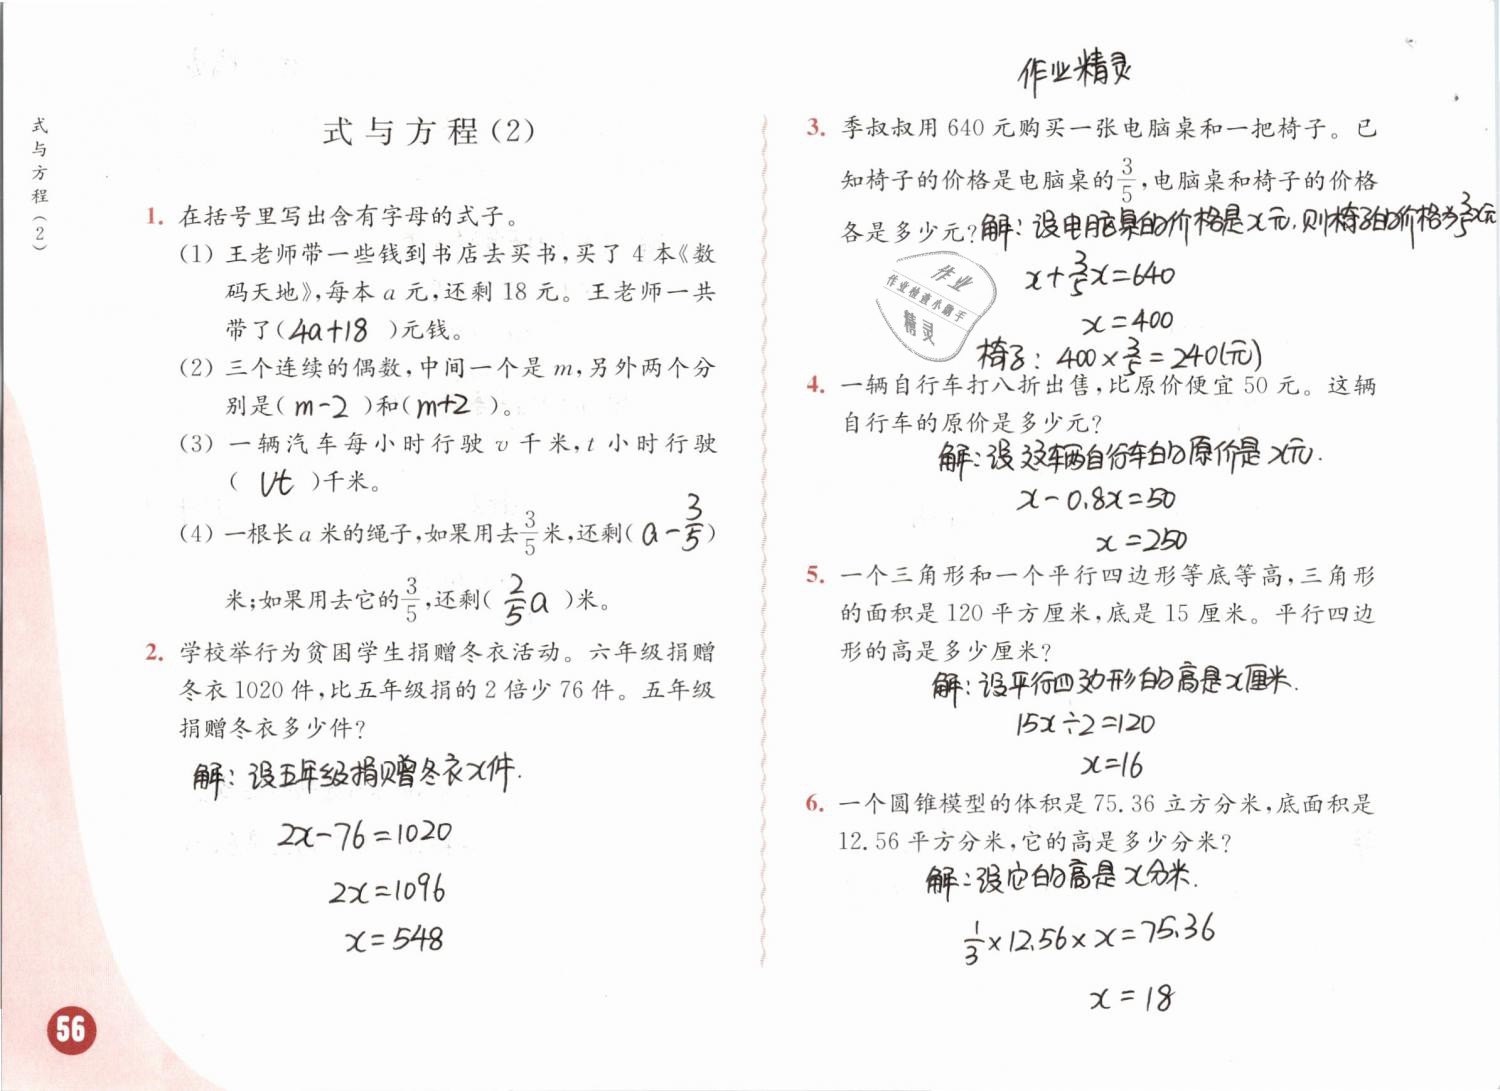 式与方程(2)
式与方程(2)
1. 在括号里写出含有字母的式子。
(1) 王老师带一些钱到书店去买书,买了 4 本《数
码天地》,每本 a 元,还剩 18 元。王老师一共
带了( 4a+18 )元钱。
(2) 三个连续的偶数,中间一个是 m,另外两个分
别是( m-2 )和( m+2 )。
(3) 一辆汽车每小时行驶 v 千米,t 小时行驶
( vt )千米。
(4) 一根长 a 米的绳子,如果用去3/5米,还剩( a-3/5 )
米;如果用去它的3/5,还剩( 2/5a )米。
2. 学校举行为贫困学生捐赠冬衣活动。六年级捐赠
冬衣 1020 件,比五年级捐的 2 倍少 76 件。五年级
捐赠冬衣多少件?
解:设五年级捐赠冬衣x件.
2x-76=1020
2x=1096
x=548
56
作业精灵
3. 季叔叔用 640 元购买一张电脑桌和一把椅子。已
知椅子的价格是电脑桌的3/5,电脑桌和椅子的价格
各是多少元?解:设电脑桌的价格是x元,则椅子的价格为3/5x元
x+3/5x=640
x=400
椅子:400×3/5=240(元)
作业
作业检查小助手
精灵
4. 一辆自行车打八折出售,比原价便宜 50 元。这辆
自行车的原价是多少元?
解:设这辆自行车的原价是x元.
x-0.8x=50
x=250
5. 一个三角形和一个平行四边形等底等高,三角形
的面积是 120 平方厘米,底是 15 厘米。平行四边
形的高是多少厘米?
解:设平行四边形的高是x厘米.
15x÷2=120
x=16
6. 一个圆锥模型的体积是 75.36 立方分米,底面积是
12.56 平方分米,它的高是多少分米?
解:设它的高是x分米.
1/3×12.56×x=75.36
x=18